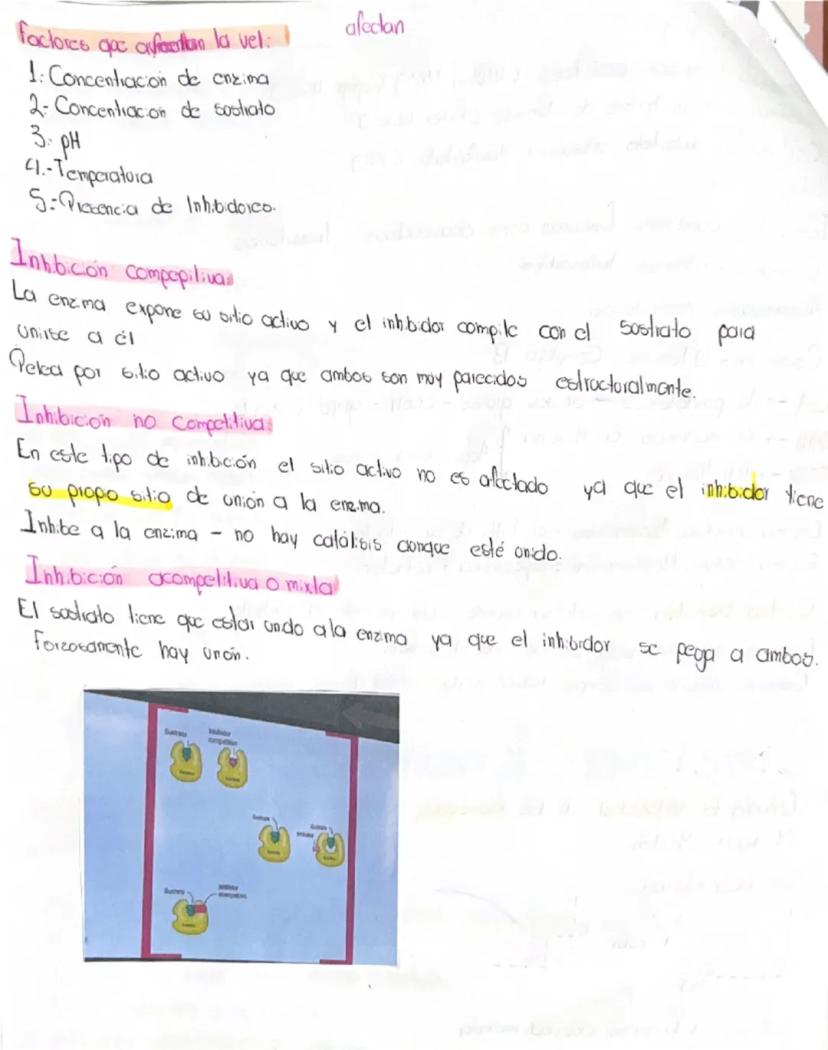 afectan
Factores que afectan la vel:
1.- Concentracion de enzima
2.- Concentracion de sostrato
3.- pH
4.- Temperatura
5.- Presencia de Inhibidores.
Inhibición compepitiva:
La enzima expone su sitio activo y el inhibidor compite con el sostrato para
unirse a él
Pelea por sitio activo ya que ambos son muy parecidos estructuralmente.
Inhibición no Competitiva:
En este tipo de inhibición el sitio activo no es afectado ya que el inhibidor tiene
su propo sitio de unión a la enzima.
Inhibe a la enzima - no hay catálisis aunque esté unido.
Inhibición acompetitiva o mixta
El sostrato tiene que estar undo a la enzima ya que el inhibidor se pega a ambos.
Forzosamente hay unión.
Sustrato
Inhibidor
competitivo
Sustrato
Sustrato
Sustrato
Inhibidor